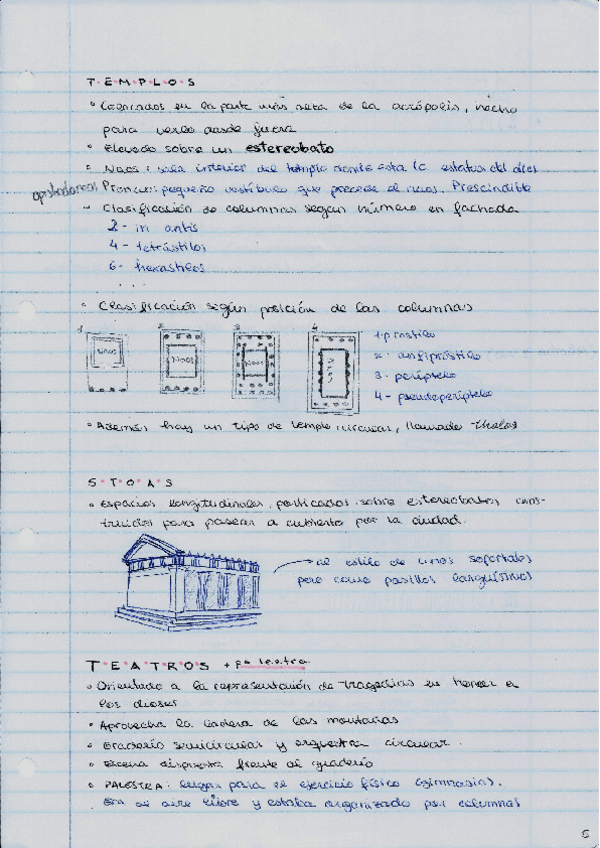 T·E·M·P·L·O·S
• Colocados en la parte más alta de la acrópolis, hecho
para verlo desde fuera
• Elevado sobre un estereobato
• Naos: sala interior del templo donde está la estatua del dios
opistodomos Pronaos: pequeño vestíbulo que precede al naos. Prescindible
- Clasificación de columnas según número en fachada
2 - in antis
4 - tetrástilos
6 - hexástilos
...
• Clasificación según posición de las columnas
1 2 3 4
NAOS NAOS NAOS NAOS
1-próstilo
2 - anfipróstilo
3 - períptero
4 - pseudoperíptero
• Además hay un tipo de templo circular, llamado tholos
S·T·O·A·S
• Espacios longitudinales, porticados sobre estereobatos cons-
truidos para pasear a cubierto por la ciudad.
al estilo de unos soportales
pero como pasillos larguísimos
T·E·A·T·R·O·S + palestra
• Orientado a la representación de tragedias en honor a
los dioses
• Aprovecha la ladera de las montañas
• Graderío semicircular y orquestra circular.
• Escena dispuesta frente al graderío
• PALESTRA: lugar para el ejercicio físico (gimnasios).
Era al aire libre y estaba organizado por columnas
6